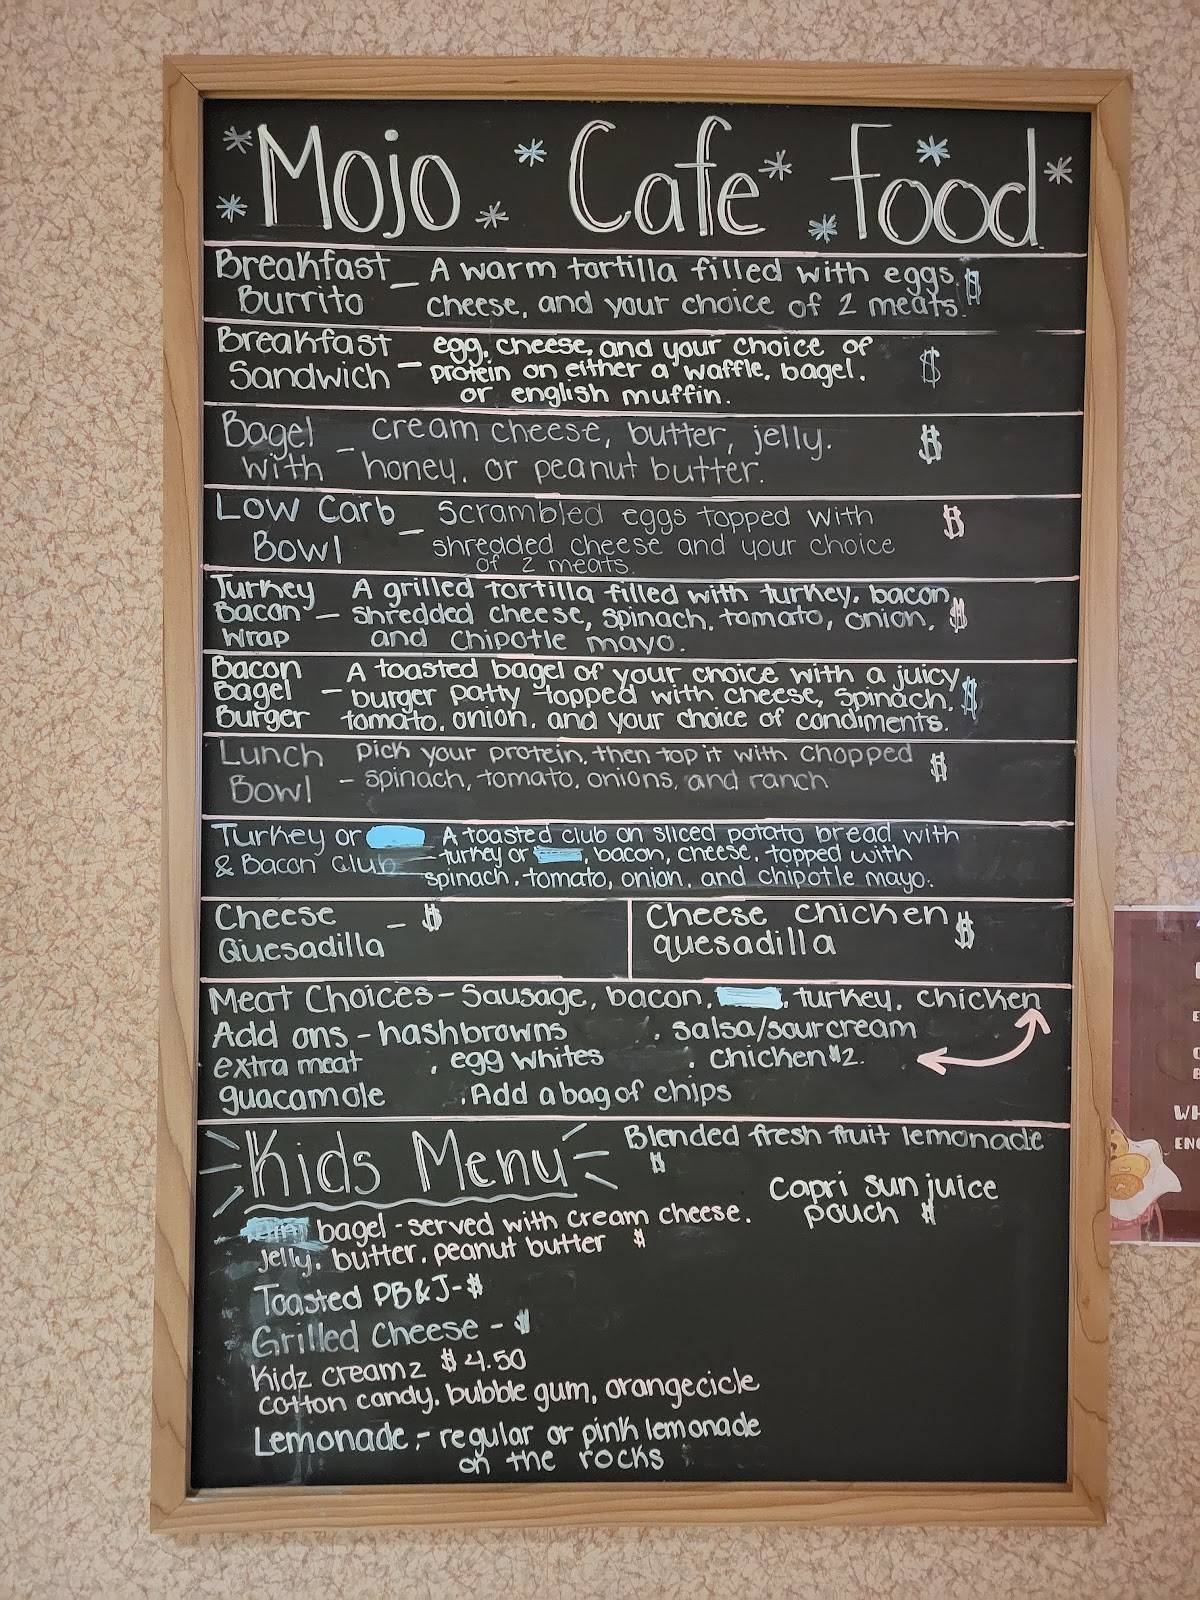 Mojo Cafe Food
Breakfast Burrito – A warm tortilla filled with eggs, $
cheese, and your choice of 2 meats.
Breakfast Sandwich – egg, cheese, and your choice of $
protein on either a waffle, bagel,
or english muffin.
Bagel with – cream cheese, butter, jelly. $
honey, or peanut butter.
Low Carb Bowl – Scrambled eggs topped with $
shredded cheese and your choice
of 2 meats.
Turkey Bacon Wrap – A grilled tortilla filled with turkey, bacon,
shredded cheese, spinach, tomato, onion, $
and chipotle mayo.
Bacon Bagel Burger – A toasted bagel of your choice with a juicy
burger patty topped with cheese, spinach, $
tomato, onion, and your choice of condiments.
Lunch Bowl – pick your protein, then top it with chopped $
spinach, tomato, onions, and ranch
Turkey or & Bacon Club – A toasted club on sliced potato bread with
turkey or , bacon, cheese, topped with
spinach, tomato, onion, and chipotle mayo.
Cheese Quesadilla – $
Cheese chicken quesadilla $
Meat Choices – Sausage, bacon, , turkey, chicken
Add ons – hashbrowns , salsa/sour cream
extra meat , egg whites , chicken $2.
guacamole , Add a bag of chips
Kids Menu
Blended fresh fruit lemonade
$
Capri sun juice
pouch $
bagel - served with cream cheese.
jelly, butter, peanut butter $
Toasted PB&J - $
Grilled Cheese - $
Kidz creamz $4.50
cotton candy, bubble gum, orangecicle
Lemonade - regular or pink lemonade
on the rocks
WH